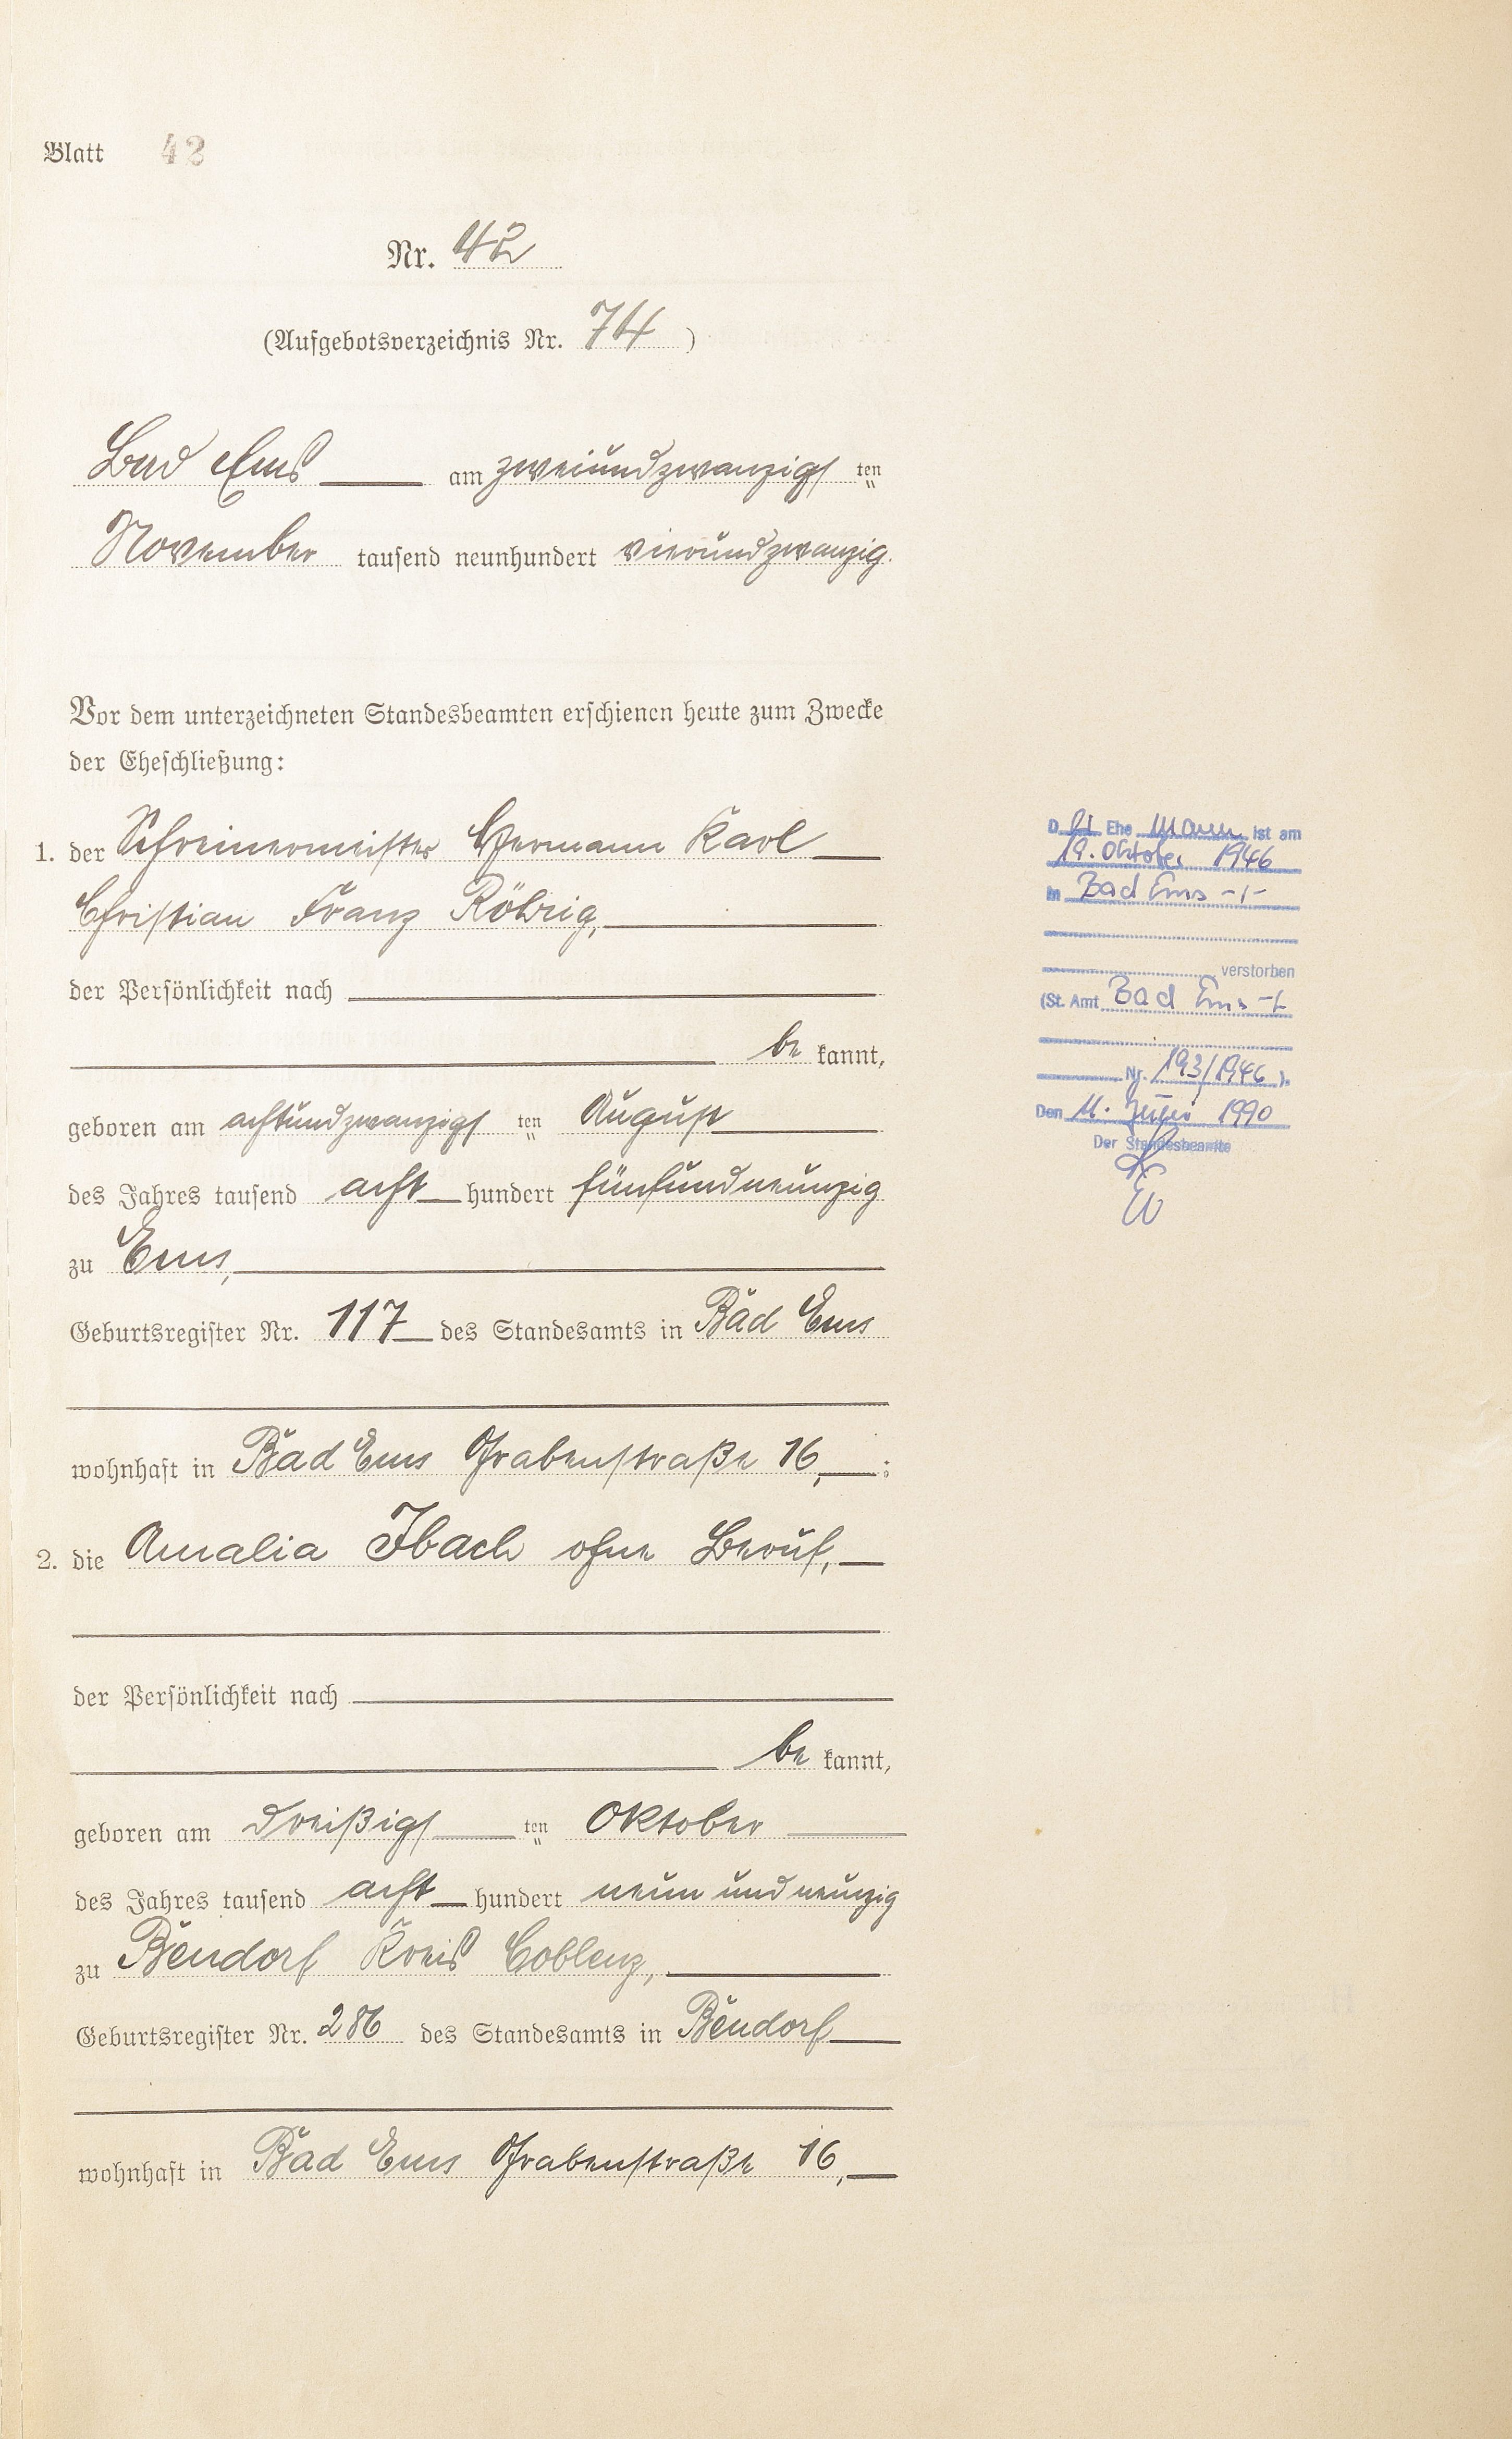 Blatt 42
Nr. 42
(Aufgebotsverzeichnis Nr. 74)
Bad Ems am zweiundzwanzigsten
November tausend neunhundert vierundzwanzig.
Vor dem unterzeichneten Standesbeamten erschienen heute zum Zwecke
der Eheschließung:
1. der Schreinermeister Hermann Karl
Christian Franz Röhrig,
der Persönlichkeit nach
be kannt,
geboren am achtundzwanzigsten August
des Jahres tausend acht hundert fünfundneunzig
zu Ems,
Geburtsregister Nr. 117 des Standesamts in Bad Ems
wohnhaft in Bad Ems Grabenstraße 16, ;
2. die Amalia Ibach ohne Beruf,
der Persönlichkeit nach
be kannt,
geboren am dreißigsten Oktober
des Jahres tausend acht hundert neun und neunzig
zu Bendorf Kreis Coblenz,
Geburtsregister Nr. 286 des Standesamts in Bendorf
wohnhaft in Bad Ems Grabenstraße 16,
D Ehemann ist am
19. Oktober 1946
in Bad Ems
verstorben
(St. Amt Bad Ems
Nr. 193/1946).
Den 11. 1990
Der Standesbeamte